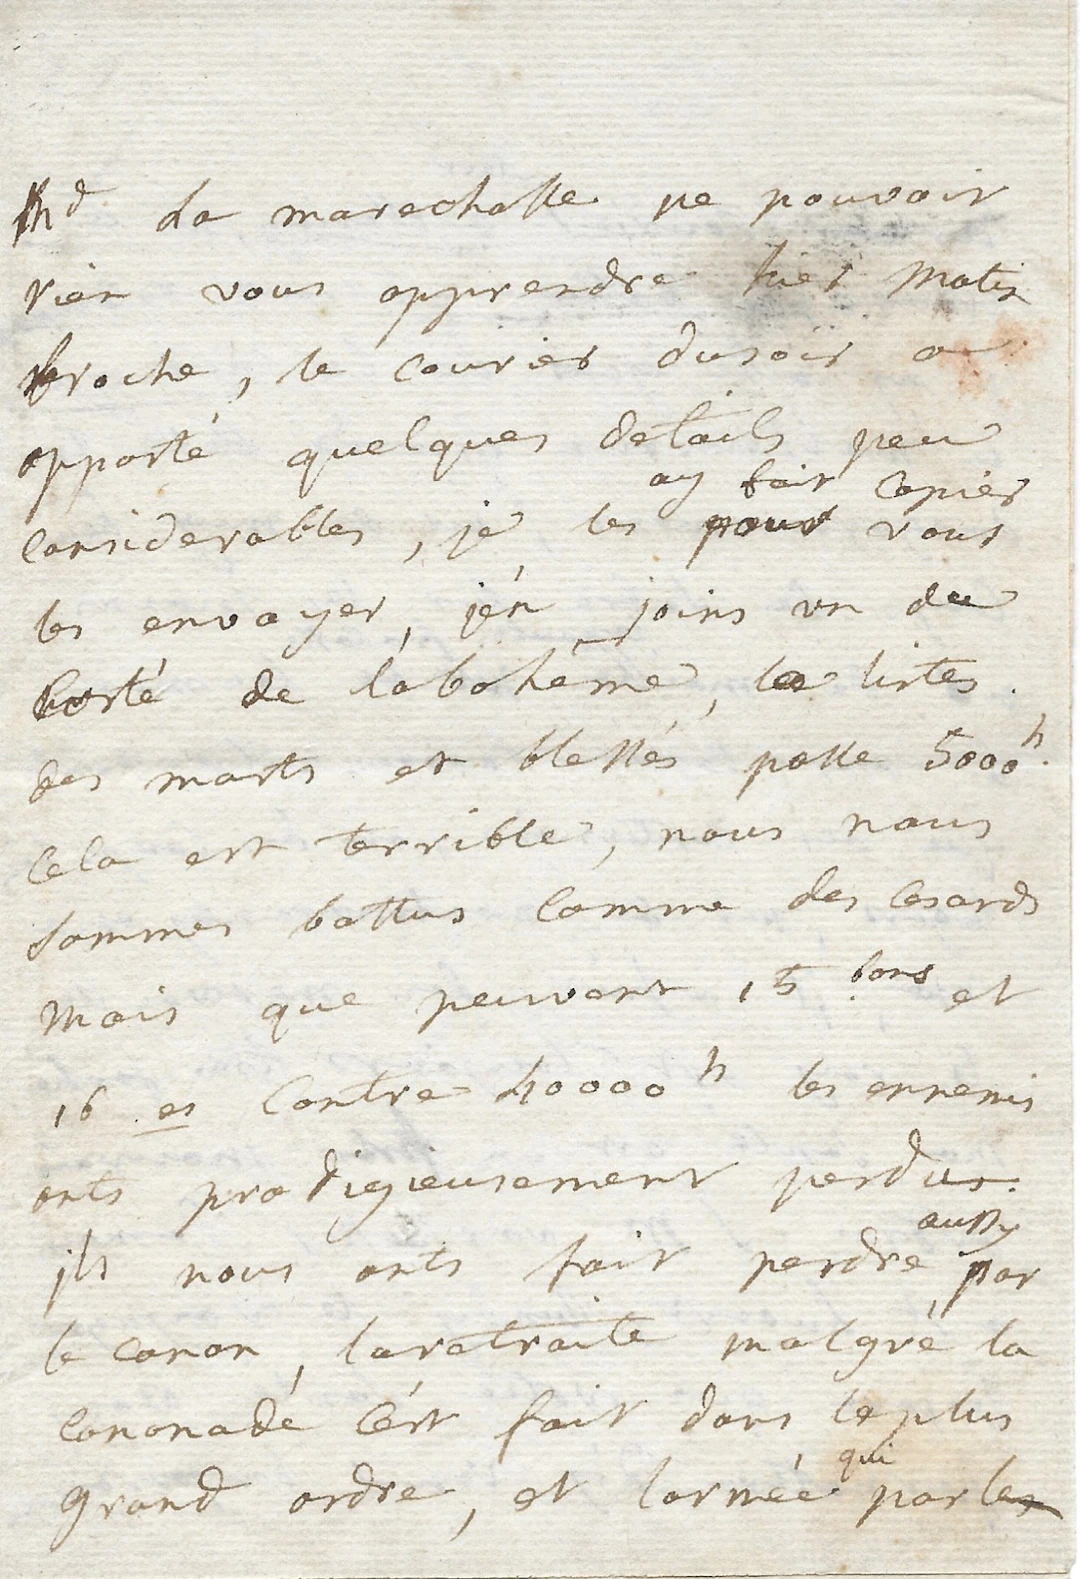 Md La marechalle ne pouvoir
rien vous apprendre hier matin
broche, le courier dusoir a
apporté quelques details peu
ay fait copier
considerables, je les pour vous
les envoyer, jén joins un du
Corté de labohême, les listes
des morts et blessés passe 5000h.
Cela est terrible, nous nous
sommes battus comme des Cesards
mais que peuvent 15 bons et
16 es Contre 40000h les ennemis
onts prodigieusement perdus.
aussy
ils nous onts fait perdre par
le canon, laretraite malgré la
canonadé Cést fait dans le plus
grand ordre, et larmée
qui
par les